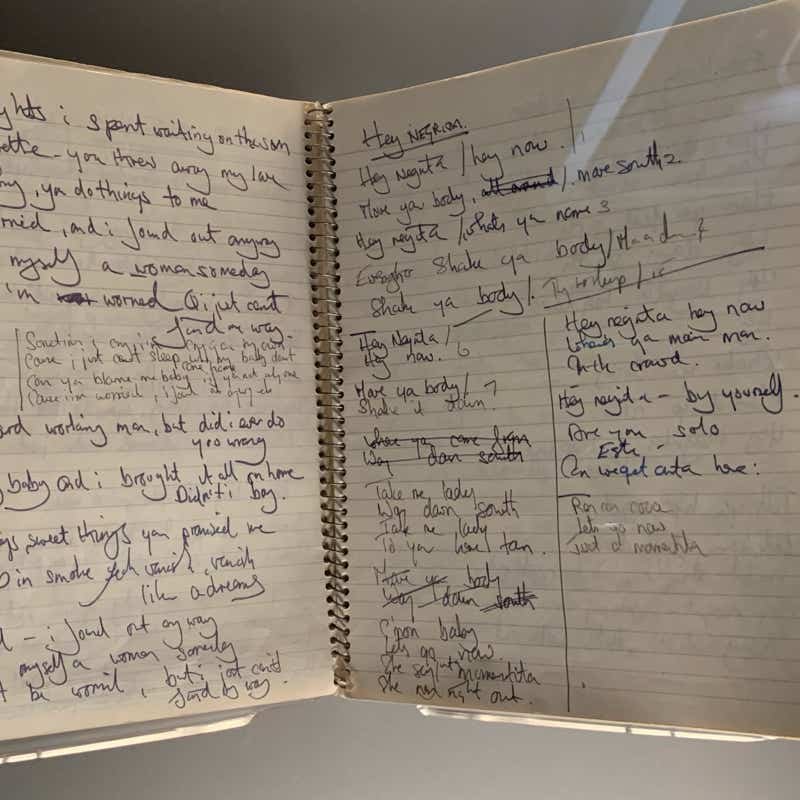 ghts i spent waiting on the
ette - you threw away my
ya do things to me
and i found out anyway
myself a woman someday
i'm worried & i just can't
find my way.
cause i just can't sleep my baby don't
Can ya blame me baby
Cause i'm worried, i
working man, but did i ever do
you wrong
baby and i brought it all on home
Didn't i boy.
sweet things you promised me
in smoke yeah vanish, vanish
like a dreams
- i found out any way
myself a woman someday
be worried, but i just can't
find my way.
Hey NEGRITA.
Hey Negrita / hey now. / 1
Move ya body, all around / . move south 2.
Hey negrita / whats ya name 3
Shake ya body /
Shake ya body / .
Hey Negrita /
Hey now. 6
Move ya body / 7
Shake it down.
Where ya come from
Way down south
Take me lady
Way down south
Take me lady
To ya home town.
Move ya body
Way down south
C'mon baby
Lets go now.
She say momentita
She not right out.
Hey negrita hey now
Whats ya main man.
In the crowd.
Hey negrita - by yourself.
Are you solo
Can we get outa here:
Ron con coca
Lets go now
Just a momentita